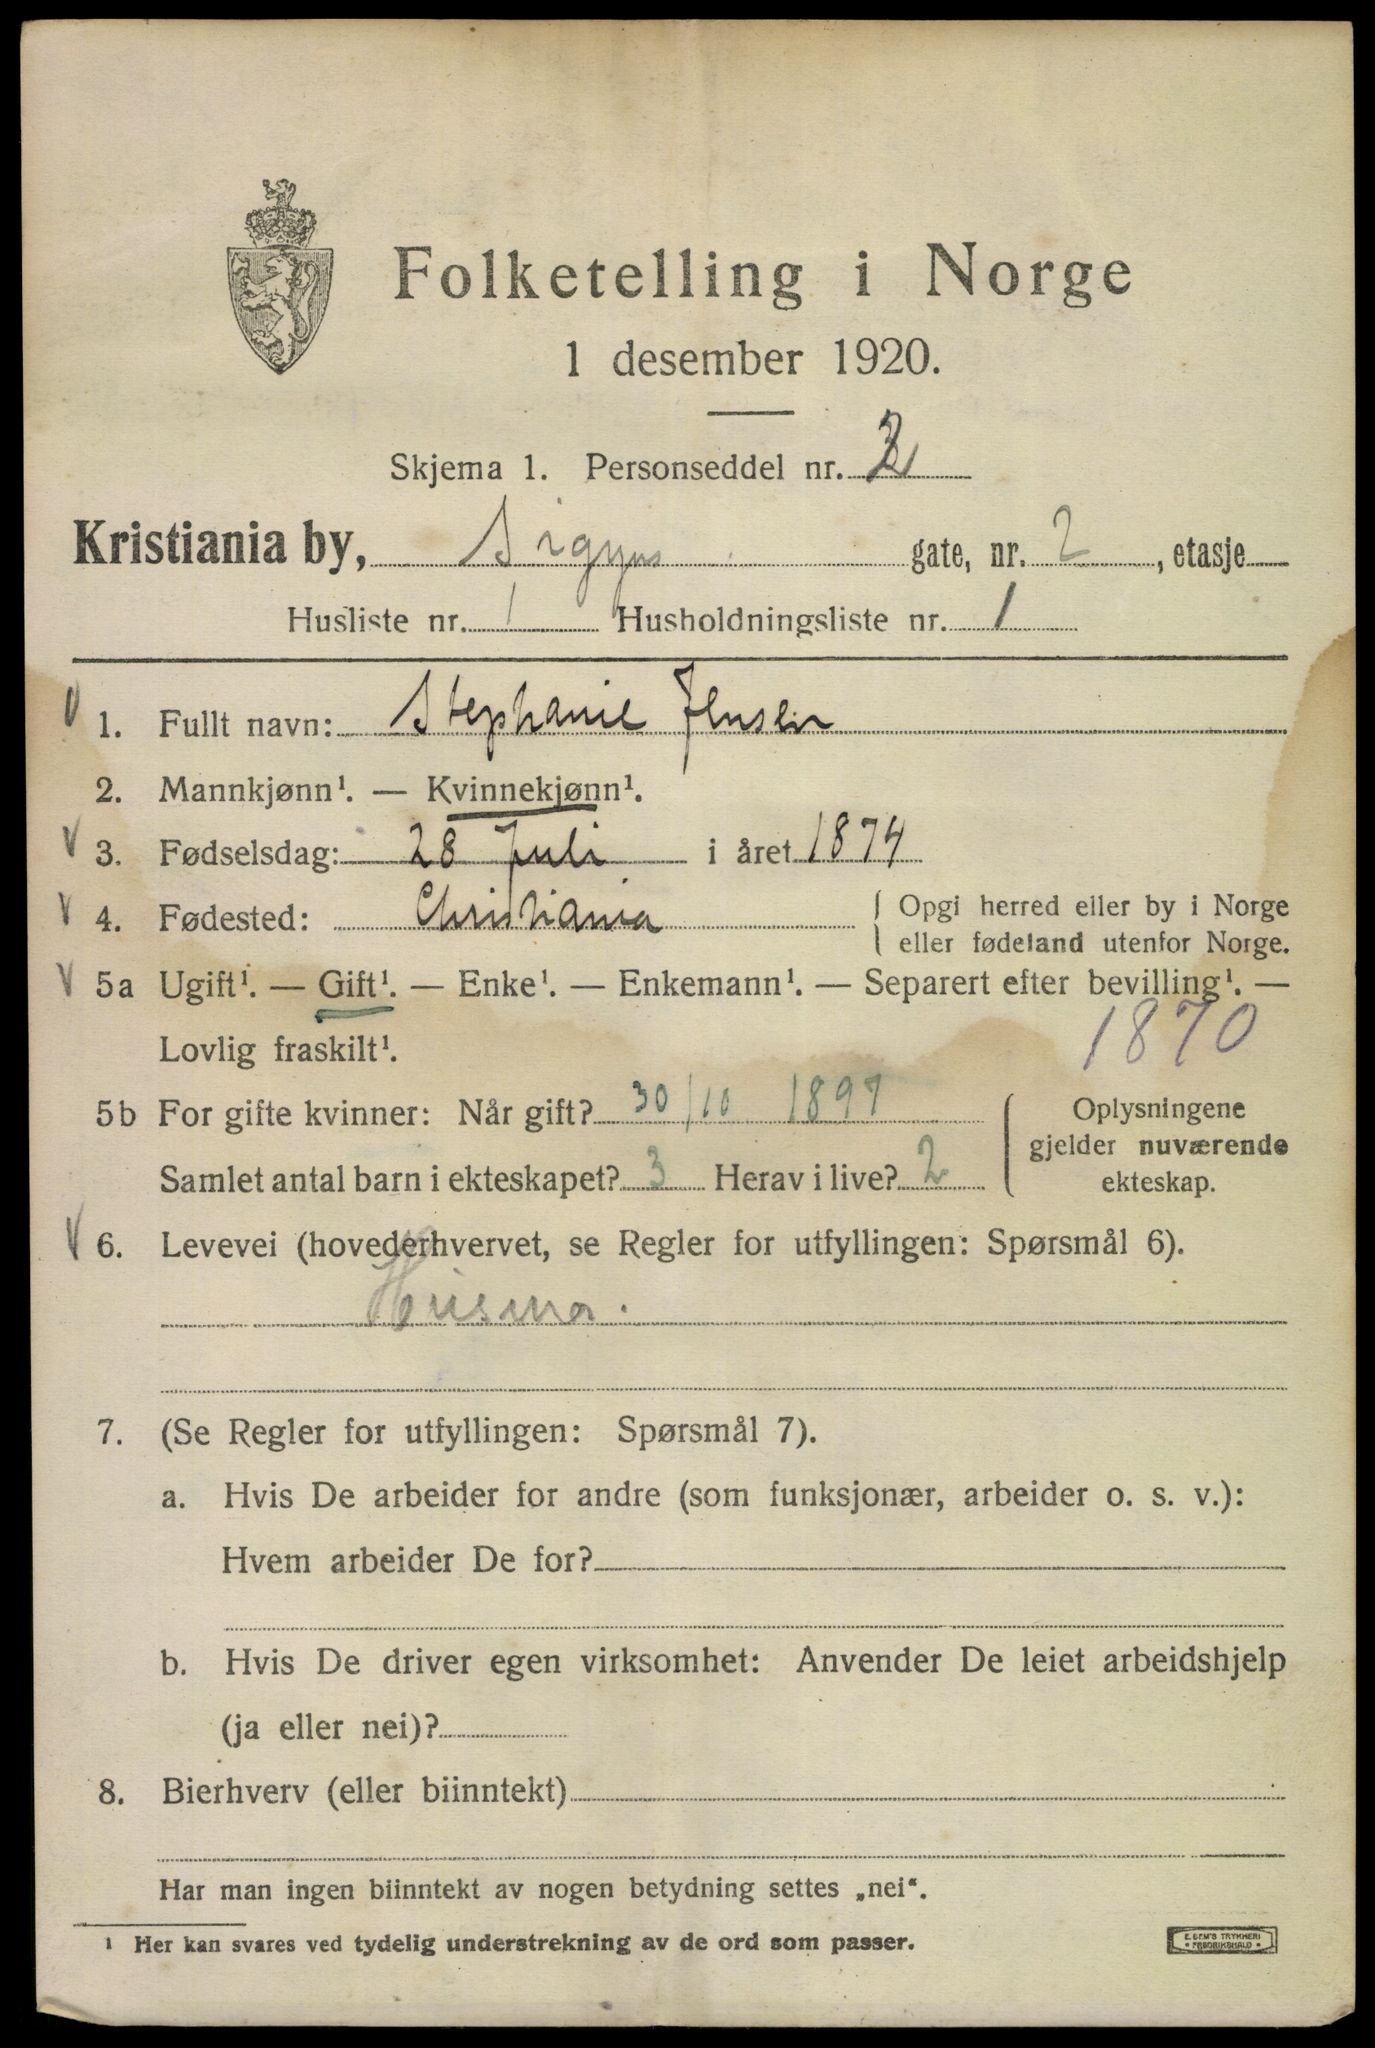 Folketelling i Norge
1 desember 1920.
Skjema 1. Personseddel nr. 2
Kristiania by, Sigyns gate, nr. 2, etasje
Husliste nr. 1 Husholdningsliste nr. 1
1. Fullt navn: Stephanie Jensen
2. Mannkjønn¹. — Kvinnekjønn¹.
3. Fødselsdag: 28 Juli i året 1874
4. Fødested: Christiania { Opgi herred eller by i Norge
eller fødeland utenfor Norge.
5a Ugift¹. — Gift¹. — Enke¹. — Enkemann¹. — Separert efter bevilling¹. —
Lovlig fraskilt¹. 1870
5b For gifte kvinner: Når gift? 30/10 1897
Samlet antal barn i ekteskapet? 3 Herav i live? 2
{ Oplysningene
gjelder nuværende
ekteskap.
6. Levevei (hovederhvervet, se Regler for utfyllingen: Spørsmål 6).
Husmor.
7. (Se Regler for utfyllingen: Spørsmål 7).
a. Hvis De arbeider for andre (som funksjonær, arbeider o. s. v.):
Hvem arbeider De for?
b. Hvis De driver egen virksomhet: Anvender De leiet arbeidshjelp
(ja eller nei)?
8. Bierhverv (eller biinntekt)
Har man ingen biinntekt av nogen betydning settes „nei“.
¹ Her kan svares ved tydelig understrekning av de ord som passer.
E. SEM'S TRYKKERI
• FREDRIKSHALD •